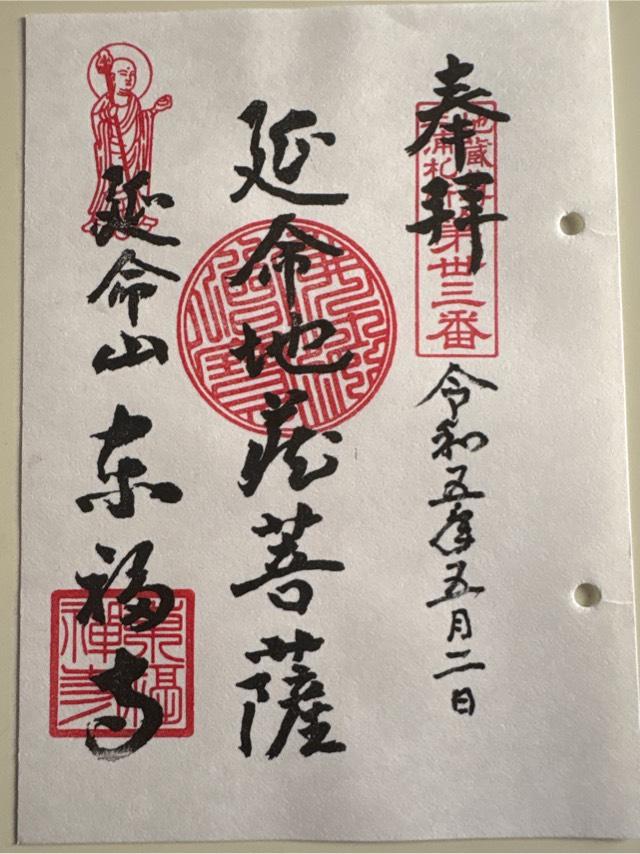 奉拝
地蔵尊
浦札所第丗三番
令和五年五月二日
延命地蔵菩薩
延命山
東福寺
東福
禅寺